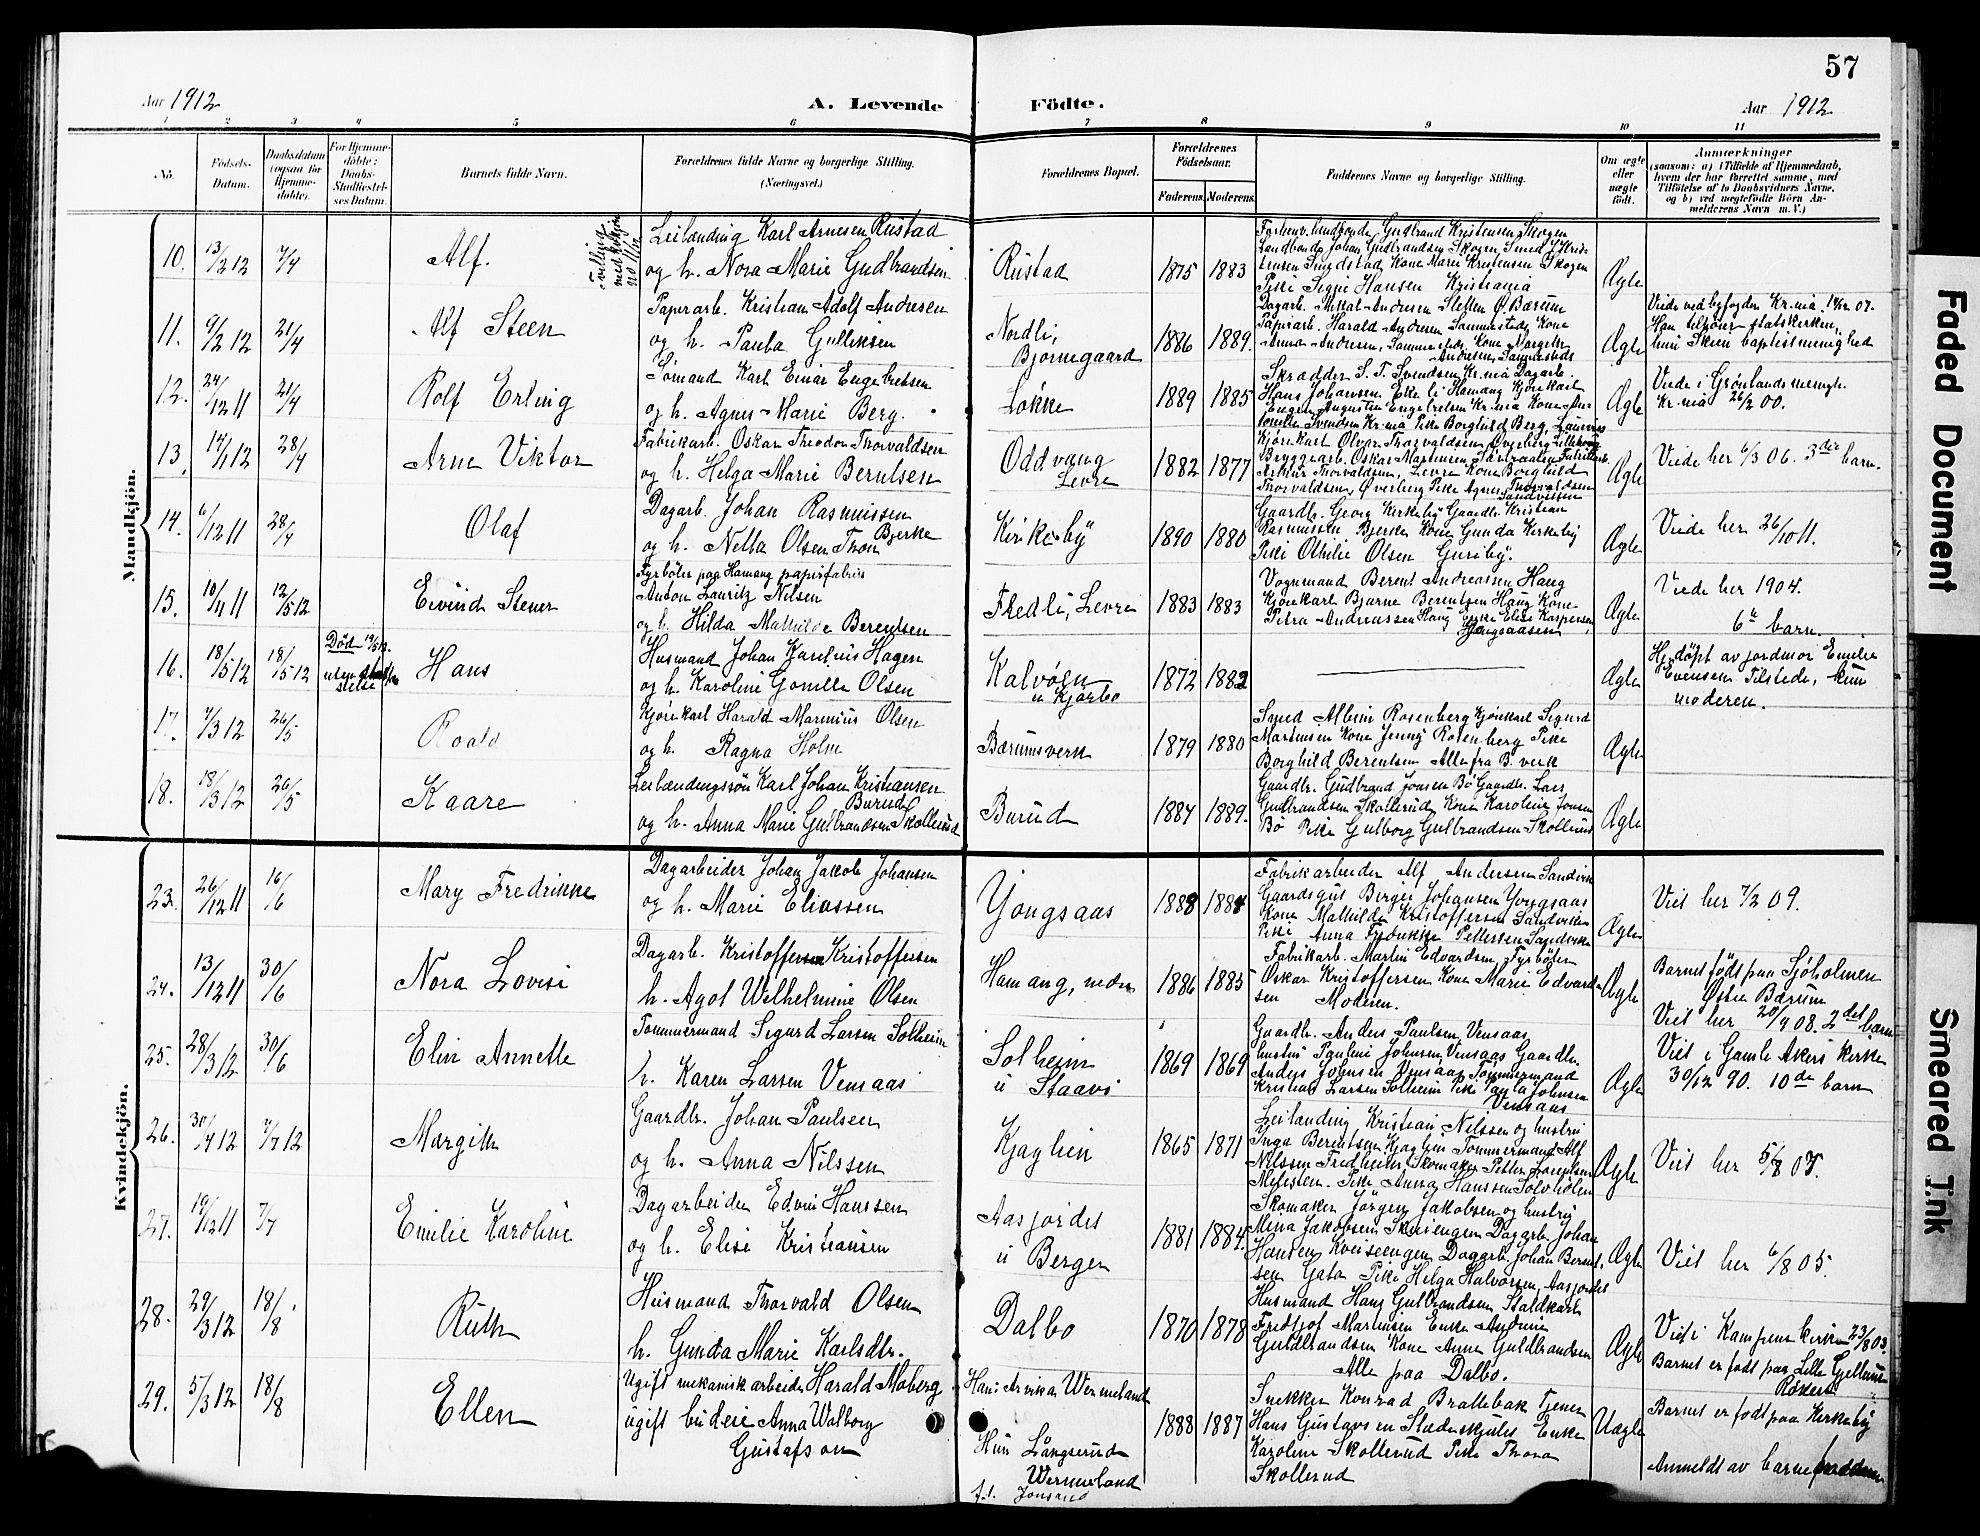 57
Aar 1912
A. Levende Födte.
Aar 1912
1 2 3 4 5 6 7 8 9 10 11
No.
Födsels-Datum.
Daabsdatum (ogsaa for Hjemme-döbte).
For Hjemme-döbte: Daabs-Stadfæstel-ses Datum.
Barnets fulde Navn.
Forældrenes fulde Navne og borgerlige Stilling.
(Næringsvei.)
Forældrenes Bopæl.
Forældrenes Födselsaar.
Faderens. Moderens.
Faddernes Navne og borgerlige Stilling.
Om ægte eller uægte födt.
Anmærkninger
(saasom: a) i Tilfælde af Hjemmedaab, hvem der har forrettet samme, med Tilföielse af to Daabsvidners Navne, og b) ved uægtefödte Börn An-melderens Navn m. V.)
Mandkjön.
10. 13/2 12 7/4 Alf.
Leilænding Karl Arnesen Rustad
og h. Nora Marie Gudbrandsen
Rustad 1875 1883
Landbonde Johan Gudbrandsen Skogen Smed
Kone Marie Kristensen Skogen
Pike Signe Hansen Kristiania
Ægte
11. 9/2 12 21/4 Alf Steen
Papirarb. Kristian Adolf Andresen
og h. Paula Gulliksen
Nordli, Bjørnegaard 1886 1889.
Papirarb. Harald Andresen
Ægte
Han tilhører statskirken,
hun Skien baptistmenighed
12. 24/12 11 21/4 Rolf Erling
Sømand Karl Einar Engebretsen
og h. Agnes Marie Berg.
Løkke 1889 1885
Skrædder S. T. Svendsen Kr.nia Dagarb.
Ægte
Kr.nia 26/2 00.
13. 14/1 12 28/4 Arne Viktor
Fabrikarb. Oskar Theodor Thorvaldsen
og h. Helga Marie Berntsen
Oddvang Levre 1882 1877
Ægte
Viede her 6/3 06. 3die barn.
14. 6/12 11 28/4 Olaf
Dagarb. Johan Rasmussen Bjerke
og h. Netta Olsen Thon
Kirkeby 1890 1880
Gaardbr. Georg Kirkeby Gaardbr. Kristian
Rasmussen Bjerke Kone Gunda Kirkeby
Pike Othilie Olsen Guriby.
Ægte
Viede her 26/10 11.
15. 10/11 11 12/5 12 Eivind Stener
Fyrböter paa Hamang papirfabrik
Anton Lauritz Nilsen
og h. Hilda Mathilde Berentsen
Fredli, Levre 1883 1883
Vognmand Berent Andreassen Haug
Kjørekarl Bjarne Berentsen Haug Kone
Petra Andreassen Haug Enke Elise Kaspersen,
Ægte
Viede her 1904.
6te barn.
16. 18/5 12 18/5 12 Død 19/5 12. Hans
Husmand Johan Karelius Hagen
og h. Karoline Gonille Olsen
Kalvøen u Kjørbo 1872 1882
Ægte
Hj.døpt av jordmor Emilie
Evensen Tilstede, kun
moderen.
17. 7/3 12 26/5 Roald
Kjørekarl Harald Marinius Olsen
og h. Ragna Holm
Bærumsverk 1879 1880
Smed Albin Rosenberg Kjørekarl Sigurd
Martinsen Kone Jenny Rosenberg Pike
Borghild Berentsen Alle fra B. verk
Ægte
18. 18/3 12 26/5 Kaare
Leilændingssøn Karl Johan Kristiansen Burud
og h. Anna Marie Gulbrandsen Skollerud
Burud 1884 1889.
Gaardbr. Gudbrand Jonsen Bö Gaardbr. Lars
Gudbrandsen Skollerud Kone Karoline Jonsen
Bö Pike Gulborg Gulbrandsen Skollerud
Ægte
Kvindekjön.
23. 26/12 11 16/6 Mary Fredrikke
Dagarbeider Johan Jakob Johansen
og h. Marie Eliassen
Yongsaas 1888 1884
Fabrikarbeider Alf Andersen Sandvik
Gaardsgut Birger Johansen Yongsaas
Kone Mathilde Kristoffersen Sandviken
Pike Anna Fredrikke Pettersen Sandviken
Ægte
Viet her 7/2 09.
24. 13/12 11 30/6 Nora Lovise
Dagarb. Kristoffer Kristoffersen
h. Agot Wilhelmine Olsen
Hamang, nedre 1886 1885
Fabrikarb. Martin Edvardsen, Fyrböter
Oskar Kristoffersen Kone Marie Edvard-
sen Moderen.
Ægte
Barnet födt paa Sjöholmen
Østre Bærum
Viet her 20/9 08. 2det barn
25. 28/3 12 30/6 Elin Annette
Tømmermand Sigurd Larsen Solheim
h. Karen Larsen Vensaas
Solheim u Staavi 1869 1869
Gaardbr. Anders Paulsen Vensaas
hustru Pauline Johnsen Vensaas Gaardbr.
Anders Johnsen Vensaas Tømmermand
Kristian Larsen Solheim Pike Paula Johnsen
Vensaas
Ægte
Viet i Gamle Akers kirke
30/12 90. 10de barn
26. 30/4 12 7/7 12 Margith
Gaardbr. Johan Paulsen
og h. Anna Nilssen
Kjaglien 1865 1871
Leilænding Kristian Nilssen og hustru
Inga Berentsen Kjaglien Tømmermand Alf
Nilssen Fredheim Skomaker Petter Lorentsen
Pike Anna Hanssen Sølvhølen
Ægte
Viet her 5/8 05.
27. 19/12 11 7/7 Emilie Karoline
Dagarbeider Edvin Hanssen
og h. Elise Kristiansen
Aasjordet u Berger 1881 1884.
Skomaker Jörgen Jakobsen og hustru
Mina Jakobsen Skuiengen Dagarb. Johan
Hansen Kveiseengen Dagarb. Johan Bernt-
sen Gata Pike Helga Halvorsen, Aasjordet
Ægte
Viet her 6/8 05.
28. 29/3 12 18/8. Ruth
Husmand Thorvald Olsen
h. Gunda Marie Karlsdtr.
Dalbo 1870 1878
Husmand Hans Gulbrandsen, Staldkarl
Fredtjof Martinsen Enke Andrine
Guldbrandsen Kone Anna Guldbrandsen
Alle paa Dalbo.
Ægte
Viet i Kampens kirke 23/8 03.
Barnet er født paa Lille Gjellum
Røken
29. 5/3 12 18/8 Ellen
Ugift mekanisk arbeider Harald Moberg
ugift budeie Anna Walborg
Gustafson
Han: Arvika Wermeland
Hun Långserud
Wermeland
1888 1887
Snekker Konrad Brattebak Tjener
Hans Gustavsen Stedenskjulet Enke
Karoline Skollerud Pike Thora
Skollerud
Uægte
Barnet er født paa Kirkeby
Anmeldt av barnefaderen
Faded Document
Smeared Ink